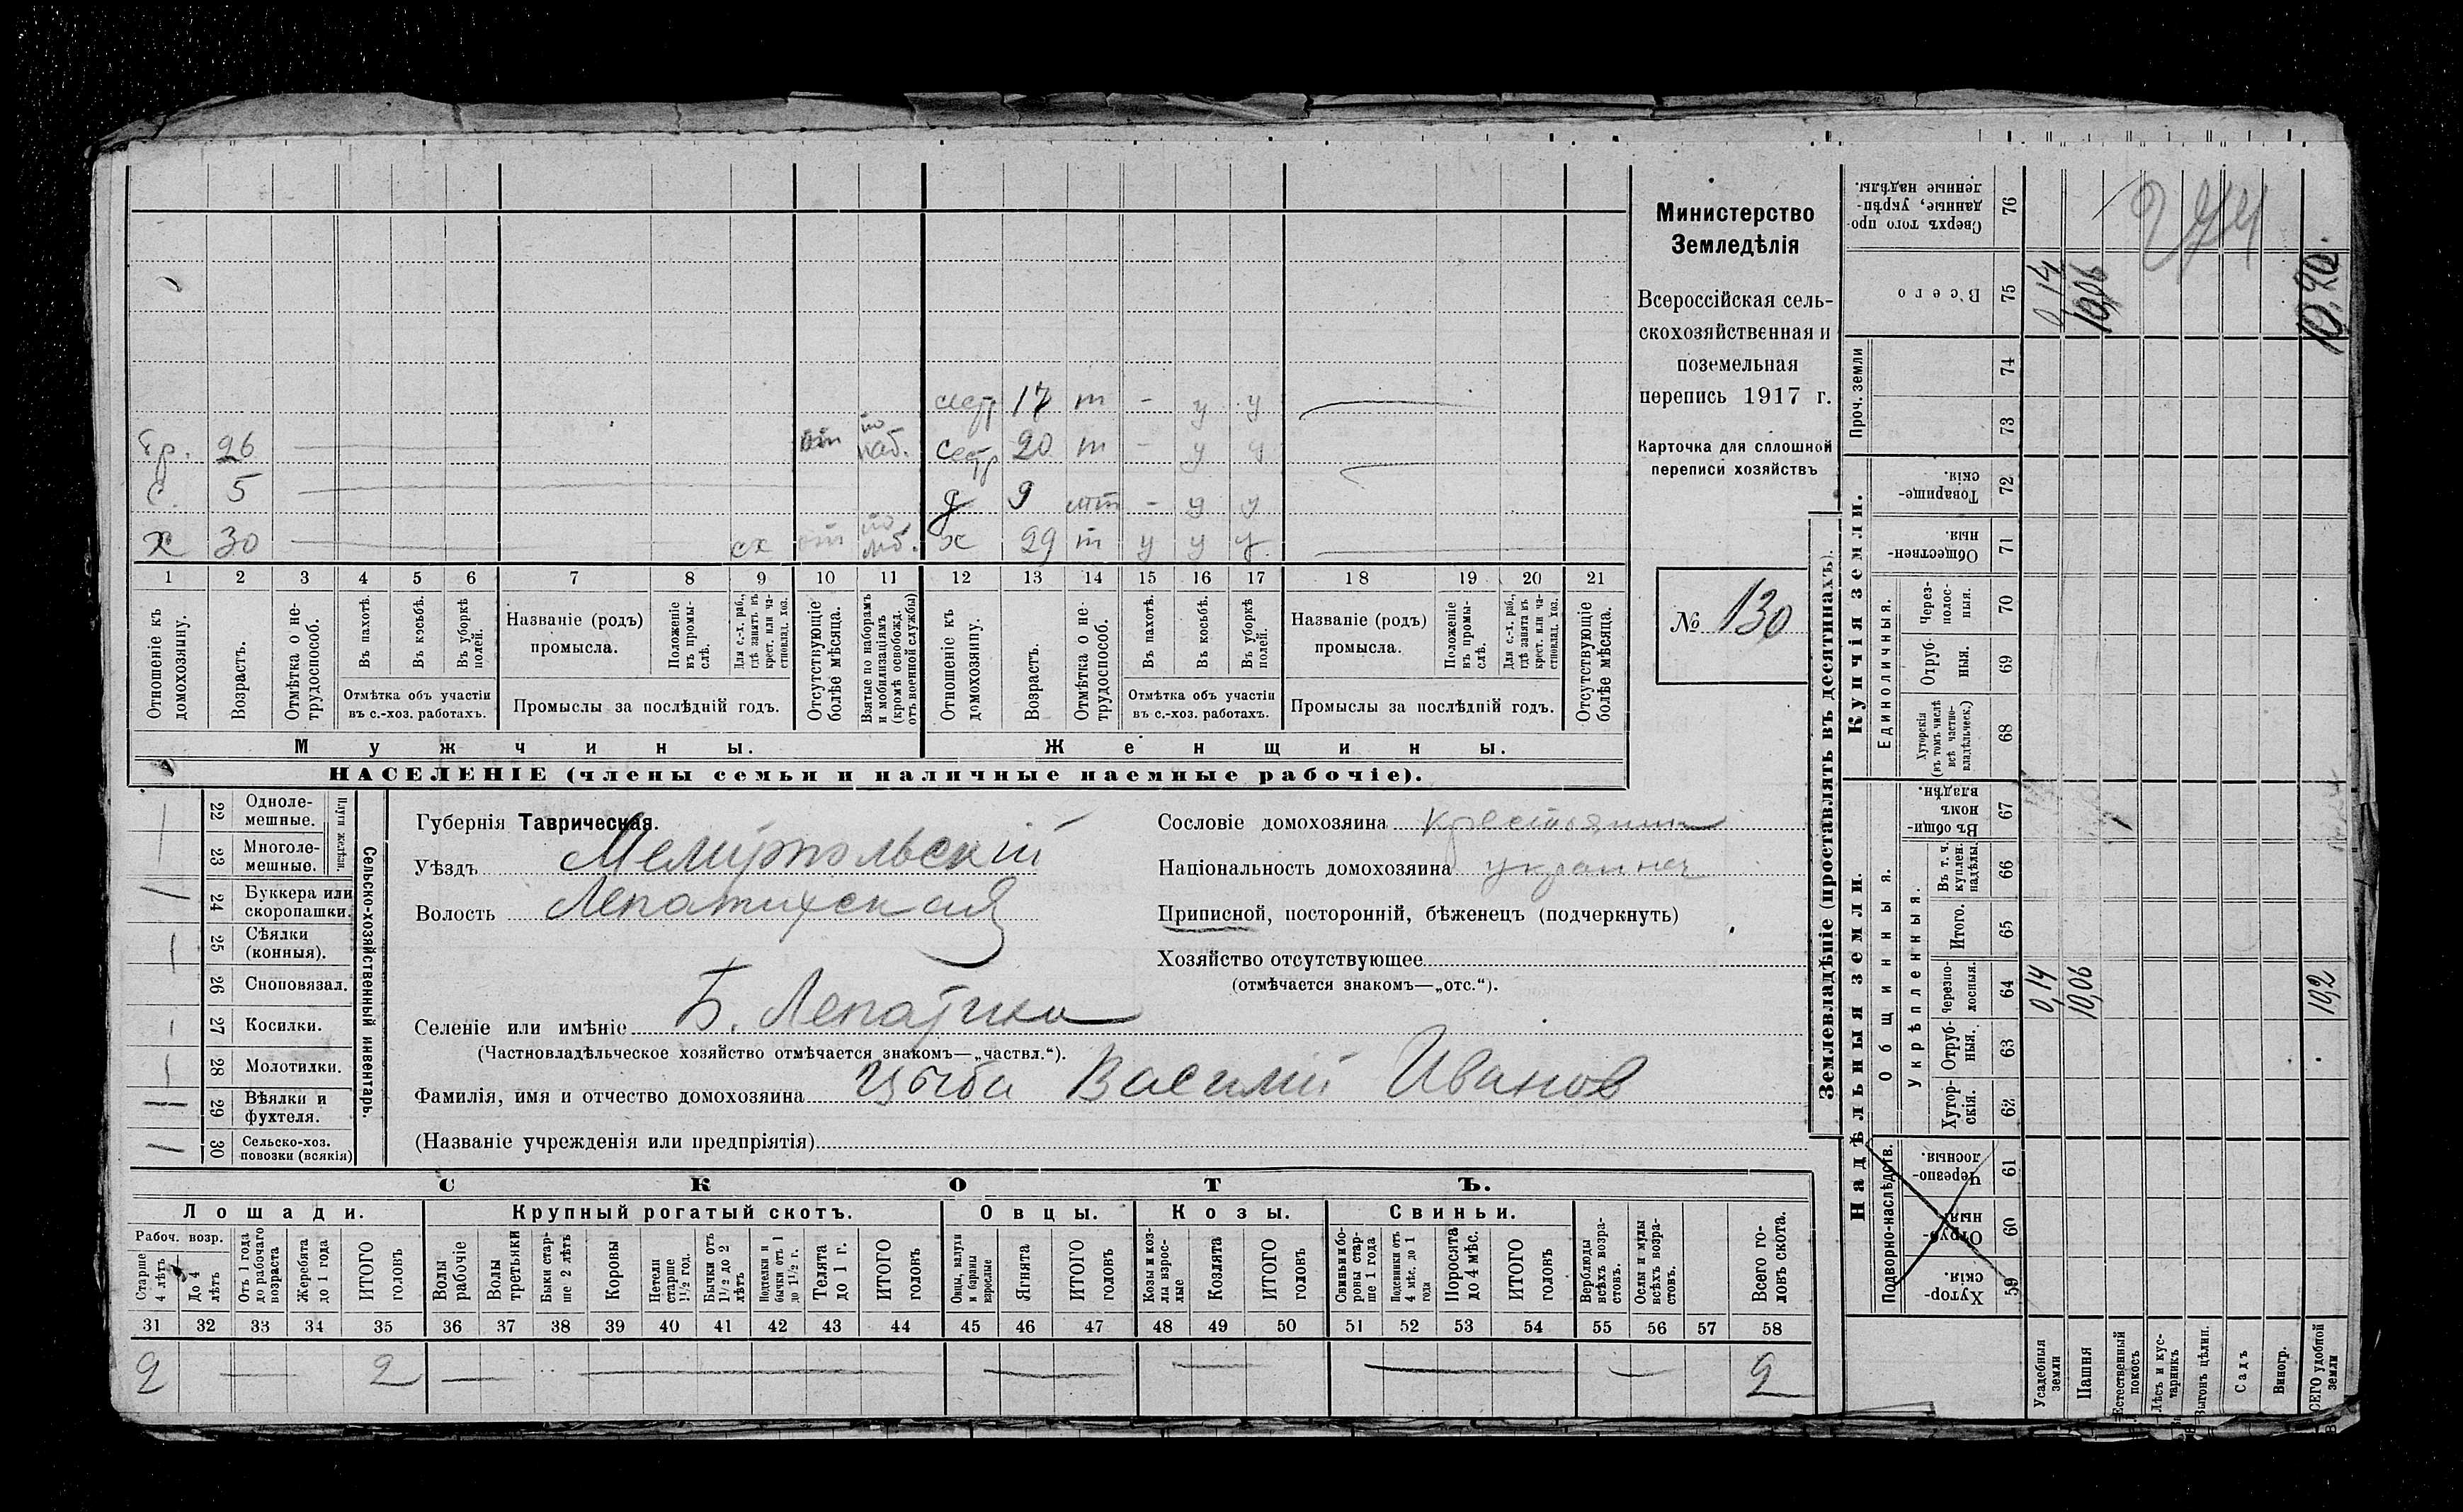 274
сестр 17 т - у у
бр. 26 от по наб. сестр 20 т - у у
с. 5 д 9 - у у
х 30 сх от по х 29 т у у у
1 2 3 4 5 6 7 8 9 10 11 12 13 14 15 16 17 18 19 20 21
Отношеніе къ домохозяину.
Возрастъ.
Отмѣтка о нетрудоспособ.
Въ пахотѣ.
Въ косьбѣ.
Въ уборкѣ полей.
Отмѣтка объ участіи
въ с.-хоз. работахъ.
Названіе (родъ)
промысла.
Положеніе въ промыслѣ.
Для с.-х. раб., гдѣ занятъ въ крест. или частновлад. хоз.
Промыслы за послѣдній годъ.
Отсутствующіе болѣе мѣсяца.
Взятые по наборамъ и мобилизаціямъ (кромѣ освобожд. отъ военной службы)
Отношеніе къ домохозяину.
Возрастъ.
Отмѣтка о нетрудоспособ.
Въ пахотѣ.
Въ косьбѣ.
Въ уборкѣ полей.
Отмѣтка объ участіи
въ с.-хоз. работахъ.
Названіе (родъ)
промысла.
Положеніе въ промыслѣ.
Для с.-х. раб., гдѣ занята въ крест. или частновлад. хоз.
Промыслы за послѣдній годъ.
Отсутствующіе болѣе мѣсяца.
Мужчины. Женщины.
НАСЕЛЕНІЕ (члены семьи и наличные наемные рабочіе).
Министерство
Земледѣлія
Всероссійская сель-
скохозяйственная и
поземельная
перепись 1917 г.
Карточка для сплошной
переписи хозяйствъ
№ 130
Сельско-хозяйственный инвентарь.
Плуги желѣзн.
22 Одноле-
мешные.
23 Многоле-
мешные.
24 Буккера или
скоропашки.
25 Сѣялки
(конныя).
26 Сноповязал.
27 Косилки.
28 Молотилки.
29 Вѣялки и
фухтеля.
30 Сельско-хоз.
повозки (всякія)
Губернія Таврическая.
Уѣздъ Мелитопольскій
Волость Лепатихская
Селеніе или имѣніе Б. Лепатиха
(Частновладѣльческое хозяйство отмѣчается знакомъ—„частвл.“).
Фамилія, имя и отчество домохозяина Цыба Василій Иванов
(Названіе учрежденія или предпріятія)
Сословіе домохозяина крестьянин
Національность домохозяина украинец
Приписной, посторонній, бѣженецъ (подчеркнуть)
Хозяйство отсутствующее
(отмѣчается знакомъ—„отс.“).
СКОТЪ.
Лошади. Крупный рогатый скотъ. Овцы. Козы. Свиньи.
Рабоч. возр.
Старше 4 лѣтъ
До 4 лѣтъ
Отъ 1 года до рабочаго возраста
Жеребята до 1 года
ИТОГО головъ
Волы рабочіе
Волы третьяки
Быки старше 2 лѣтъ
Коровы
Нетели старше 1½ год.
Бычки отъ 1½ до 2 лѣтъ
Подтелки и бычки отъ 1 до 1½ г.
Телята до 1 г.
ИТОГО головъ
Овцы, валухи и бараны взрослые
Ягнята
ИТОГО головъ
Козы и козлы взрослые
Козлята
ИТОГО головъ
Свиньи и боровы старше 1 года
Подсвинки отъ 4 мѣс. до 1 года
Поросята до 4 мѣс.
ИТОГО головъ
Верблюды всѣхъ возрастовъ.
Ослы и мулы всѣхъ возрастовъ.
Всего головъ скота.
31 32 33 34 35 36 37 38 39 40 41 42 43 44 45 46 47 48 49 50 51 52 53 54 55 56 57 58
2 2 2
Землевладѣніе (проставлять въ десятинахъ).
Надѣльныя земли.
Купчія земли.
Проч. земли
Подворно-наслѣдств.
Общинныя.
Укрѣпленныя.
Единоличныя.
Хуторскія. 59
Отрубныя. 60
Черезполосныя. 61
Хуторскія. 62
Отрубныя. 63
Черезполосныя. 64
Итого. 65
Въ т. ч. куплен. надѣлы. 66
Въ общинномъ владѣн. 67
Хуторскія (въ томъ числѣ всѣ частновладѣльческ.) 68
Отрубныя. 69
Черезполосныя. 70
Общественныя. 71
Товарищескія. 72
73
74
Всего 75
Сверхъ того проданные, укрѣпленные надѣлы. 76
Усадебныя земли 0,14 0,14
Пашня 10,06 10,06
Естественный покосъ
Лѣсъ и кустарникъ
Выгонъ цѣлин.
Садъ
Виногр.
ВСЕГО удобной земли 10,2 10,20